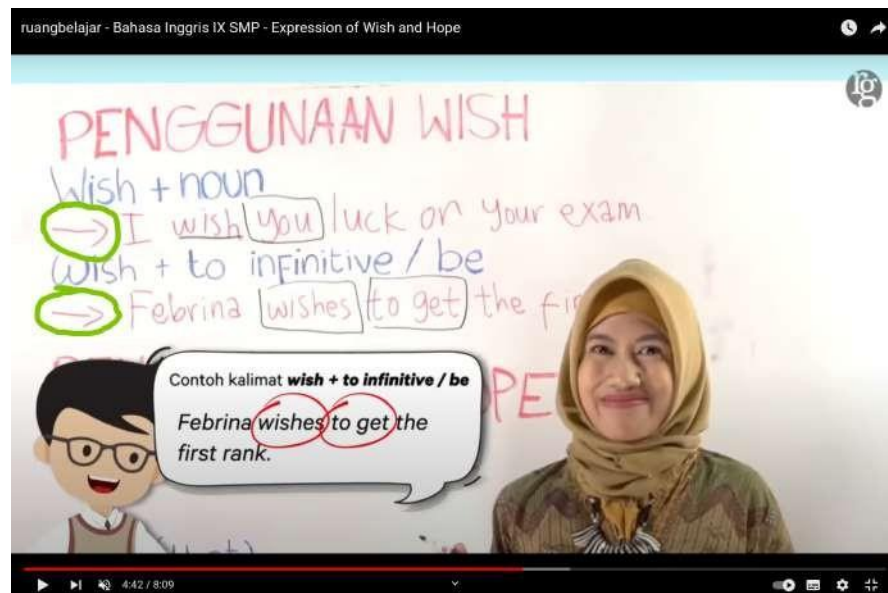 ruangbelajar - Bahasa Inggris IX SMP - Expression of Wish and Hope
rg
PENGGUNAAN WISH
Wish + noun
→ I wish you luck on your exam
Wish + to infinitive / be
→ Febrina wishes to get the
Contoh kalimat wish + to infinitive / be
Febrina wishes to get the
first rank.
4:42 / 8:09